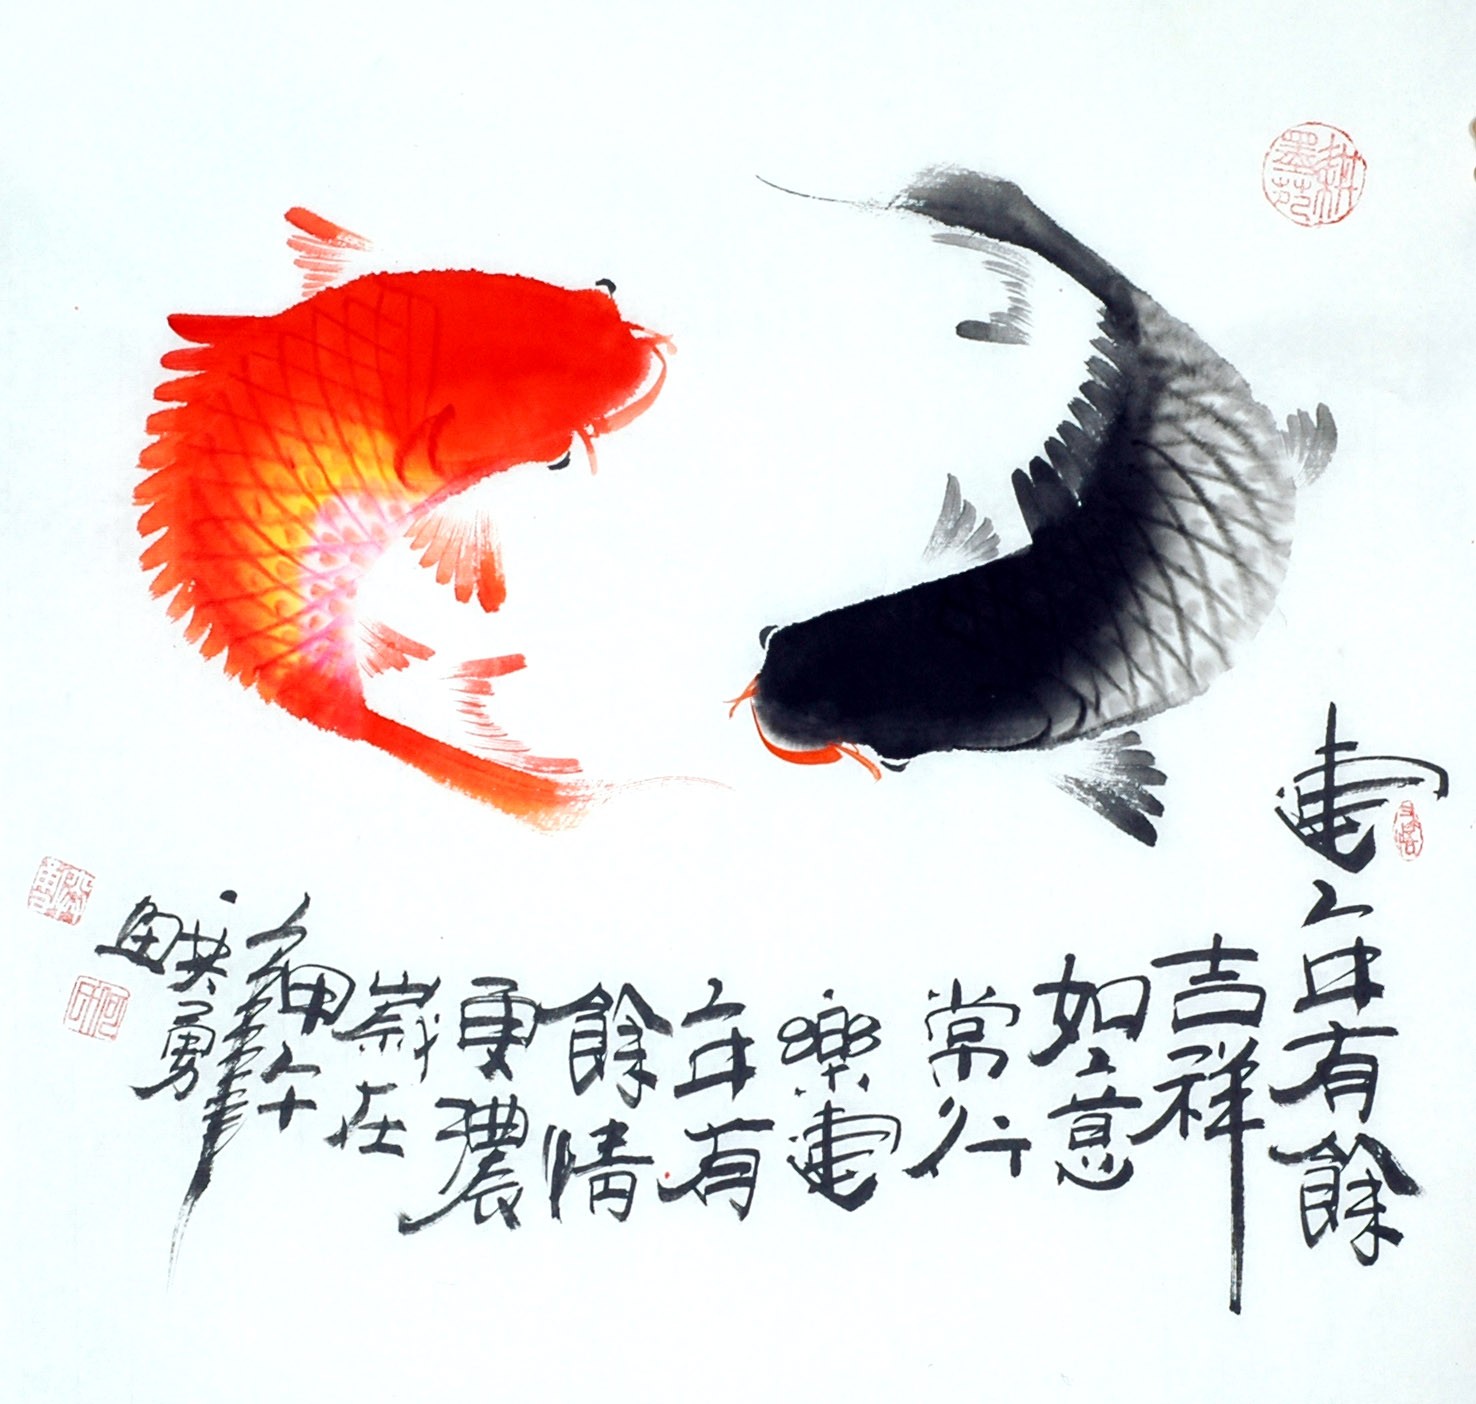 連年有餘
吉祥
如意
常行
樂連
年有
餘情
更濃
歲在
甲午
英勇
畫